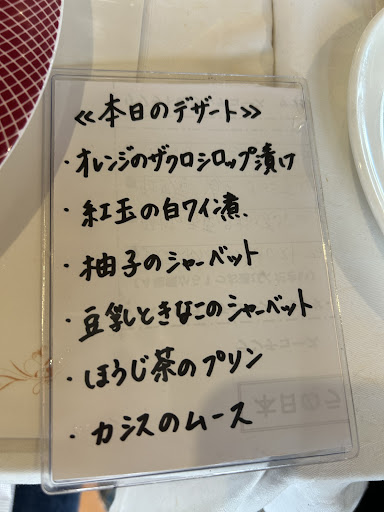 ≪本日のデザート≫
・オレンジのザクロシロップ漬け
・紅玉の白ワイン煮、
・柚子のシャーベット
・豆乳ときなこのシャーベット
・ほうじ茶のプリン
・カシスのムース